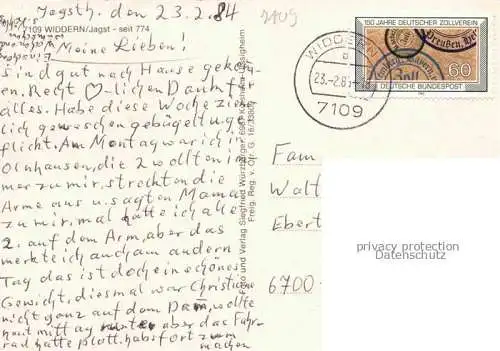 Jagsth. den 23.2.84
7109
7109 WIDDERN/Jagst - seit 774
Meine Lieben!
Sind gut nach Hause gekom-
men. Recht ♡-lichen Dank für
alles. Habe diese Woche ziem-
lich gewaschen gebügelt u. ge-
flickt. Am Montag war ich in
Olnhausen, die 2 wollten im
mer zu mir, streckten die
Arme aus u. sagten Mama
zu mir, mal hatte ich alle
2. auf dem Arm, aber das
merkte ich auch am andern
Tag das ist doch ein schönes
Gewicht, diesmal war Christiane
nicht ganz auf dem Dam, wollte
heut mittag aber das Fahr-
rad hatte plott. habs fort zum
machen
Foto und Verlag Siegfried Würzberger, 6951
Freig. Reg. v. Obb. G.
WIDDERN
23.-2.8
7109
150 JAHRE DEUTSCHER ZOLLVEREIN
Preußen.
Zoll
60
DEUTSCHE BUNDESPOST
Fam
Walt
Ebert
6700
privacy protection
Datenschutz